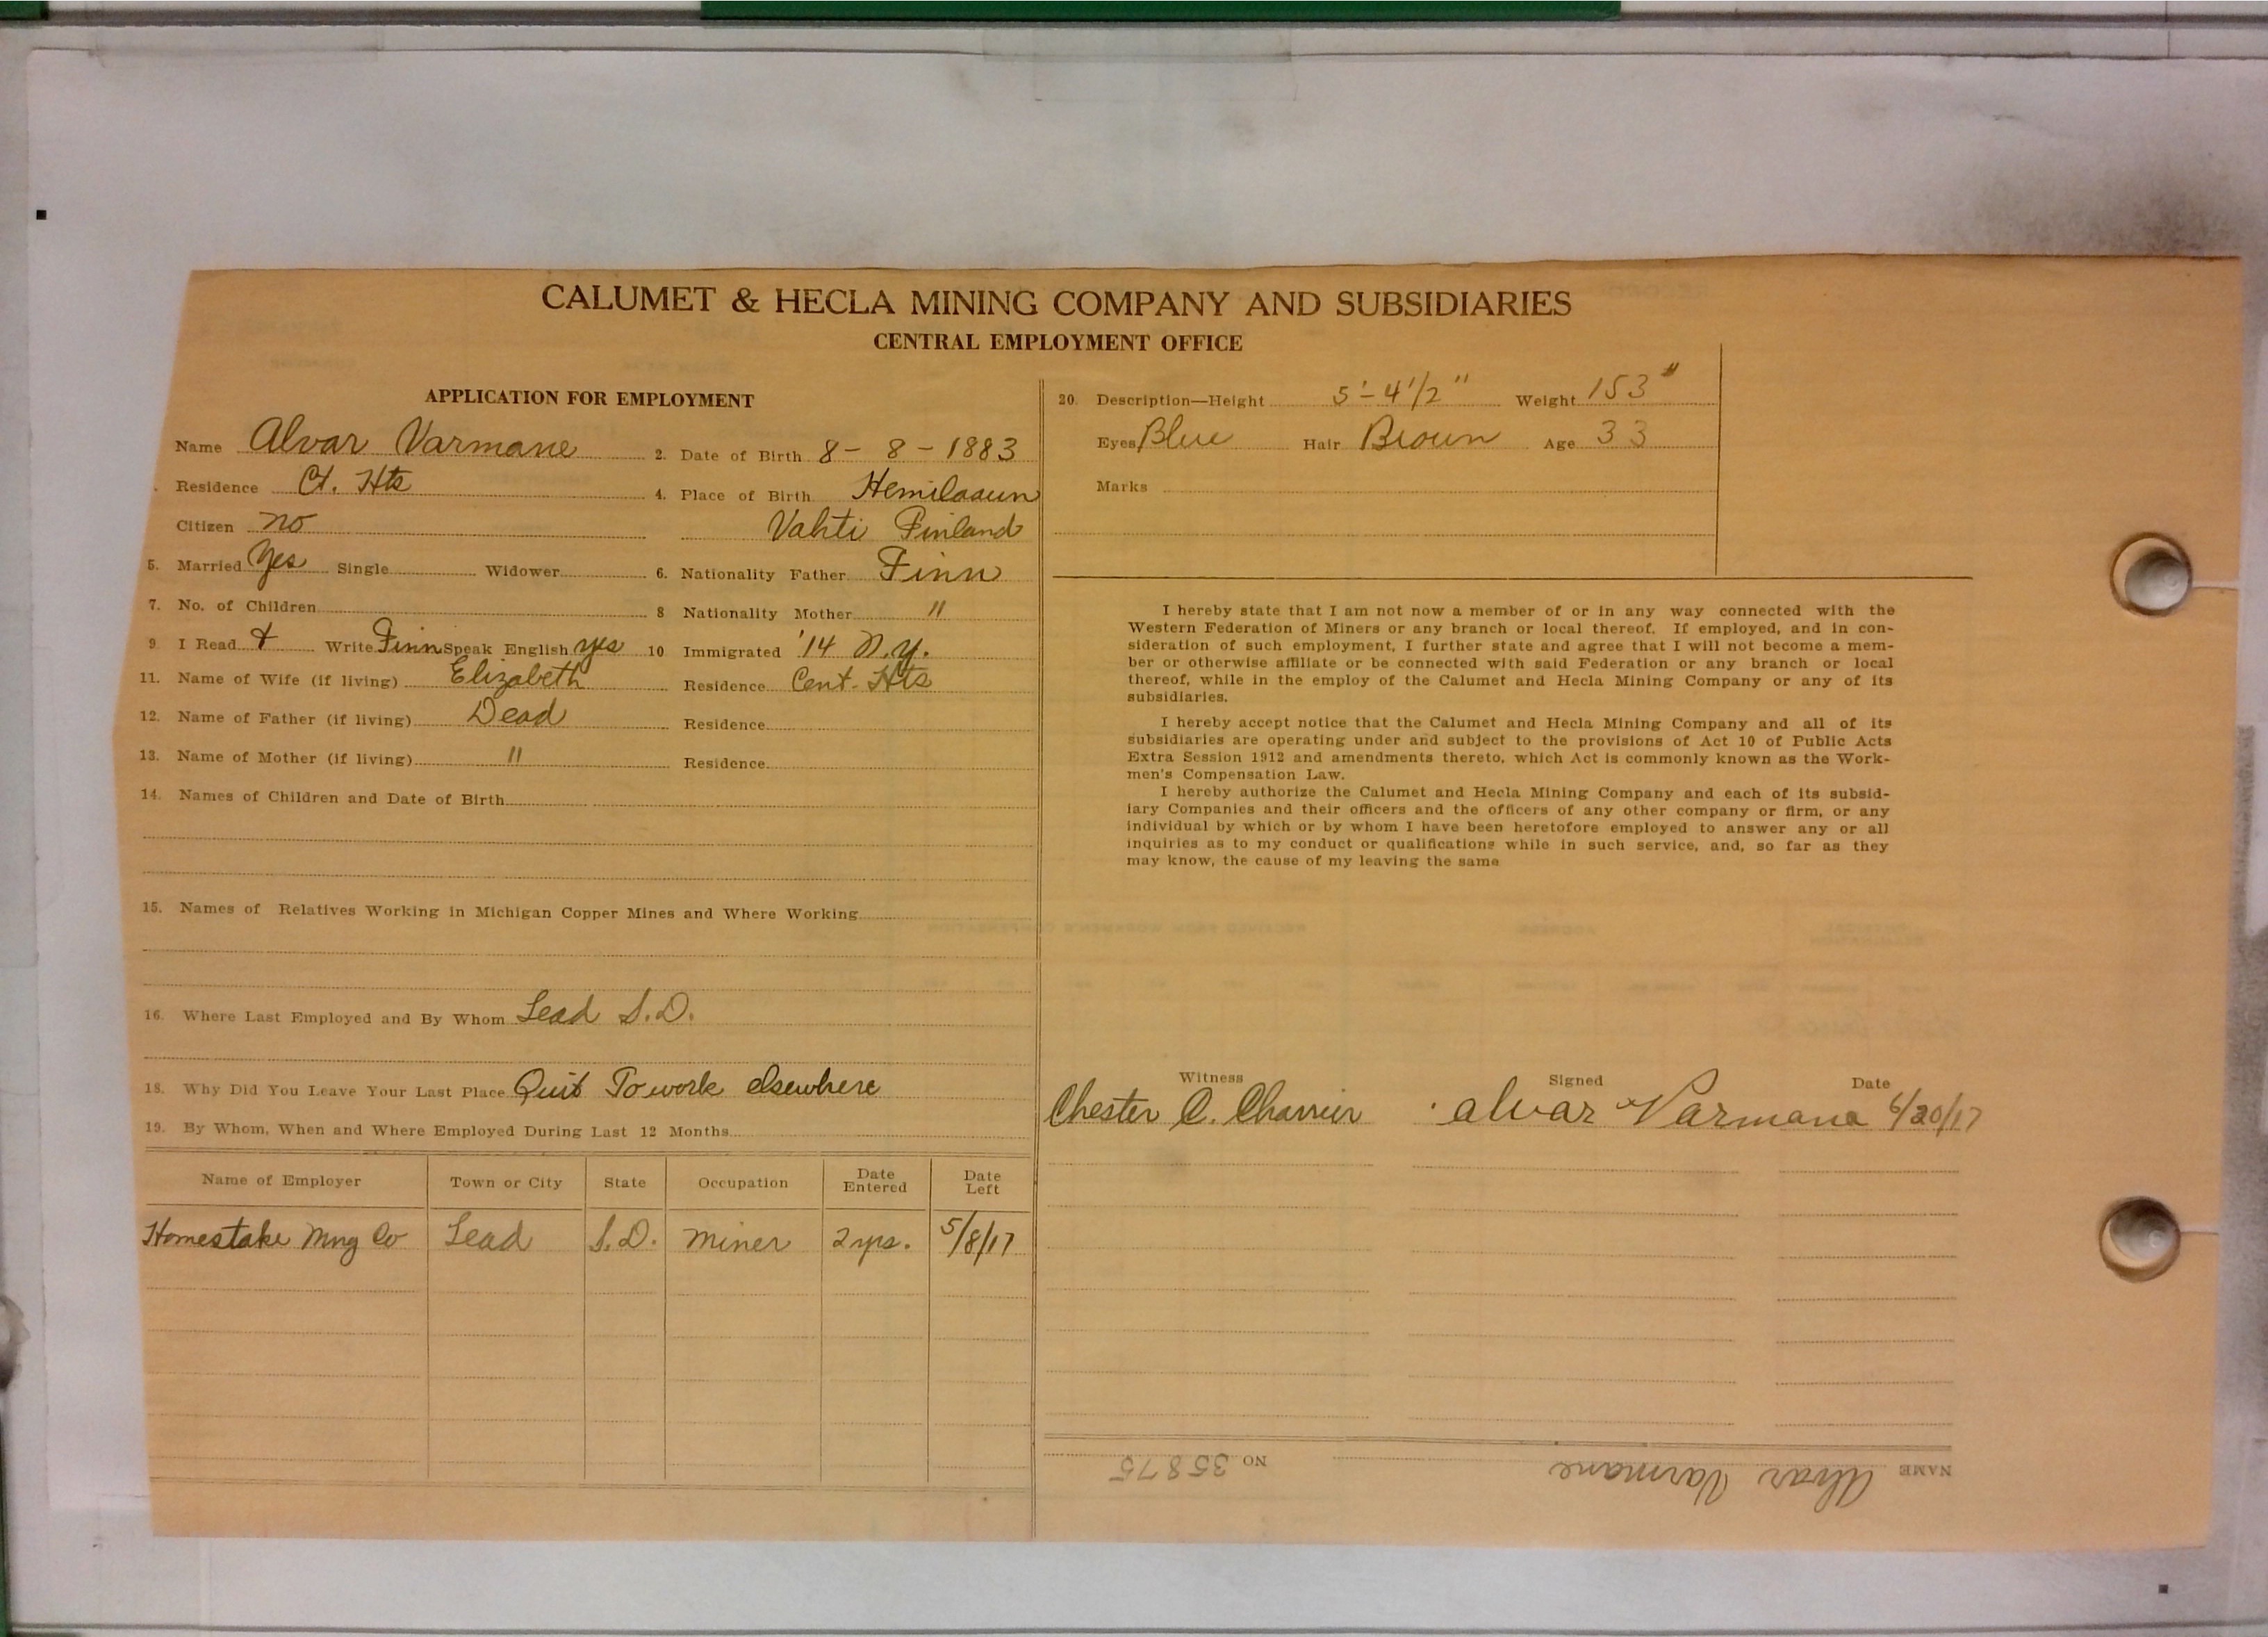 CALUMET & HECLA MINING COMPANY AND SUBSIDIARIES
CENTRAL EMPLOYMENT OFFICE
APPLICATION FOR EMPLOYMENT
Name Alvar Varmane 2. Date of Birth 8 - 8 - 1883
Residence Ct. Hts 4. Place of Birth Hemilaaun
Citizen no Vahti Finland
5. Married Yes Single Widower 6. Nationality Father Finn
7. No. of Children 8 Nationality Mother "
9 I Read + Write Finn Speak English yes 10 Immigrated '14 N.Y.
11. Name of Wife (if living) Elizabeth Residence Cent. Hts
12. Name of Father (if living) Dead Residence
13. Name of Mother (if living) " Residence
14. Names of Children and Date of Birth
15. Names of Relatives Working in Michigan Copper Mines and Where Working
16. Where Last Employed and By Whom Lead S.D.
18. Why Did You Leave Your Last Place Quit To work elsewhere
19. By Whom, When and Where Employed During Last 12 Months
Name of Employer Town or City State Occupation Date Entered Date Left
Homestake Mng Co Lead S.D. Miner 2 yrs. 5/8/17
20. Description—Height 5'-4 1/2" Weight 153 "
Eyes Blue Hair Brown Age 33
Marks
I hereby state that I am not now a member of or in any way connected with the
Western Federation of Miners or any branch or local thereof. If employed, and in con-
sideration of such employment, I further state and agree that I will not become a mem-
ber or otherwise affiliate or be connected with said Federation or any branch or local
thereof, while in the employ of the Calumet and Hecla Mining Company or any of its
subsidiaries.
I hereby accept notice that the Calumet and Hecla Mining Company and all of its
subsidiaries are operating under and subject to the provisions of Act 10 of Public Acts
Extra Session 1912 and amendments thereto, which Act is commonly known as the Work-
men's Compensation Law.
I hereby authorize the Calumet and Hecla Mining Company and each of its subsid-
iary Companies and their officers and the officers of any other company or firm, or any
individual by which or by whom I have been heretofore employed to answer any or all
inquiries as to my conduct or qualifications while in such service, and, so far as they
may know, the cause of my leaving the same
Witness Signed Date
Chester C. Charrier Alvar Varmana 6/20/17
NAME Alvar Varmane NO 35875